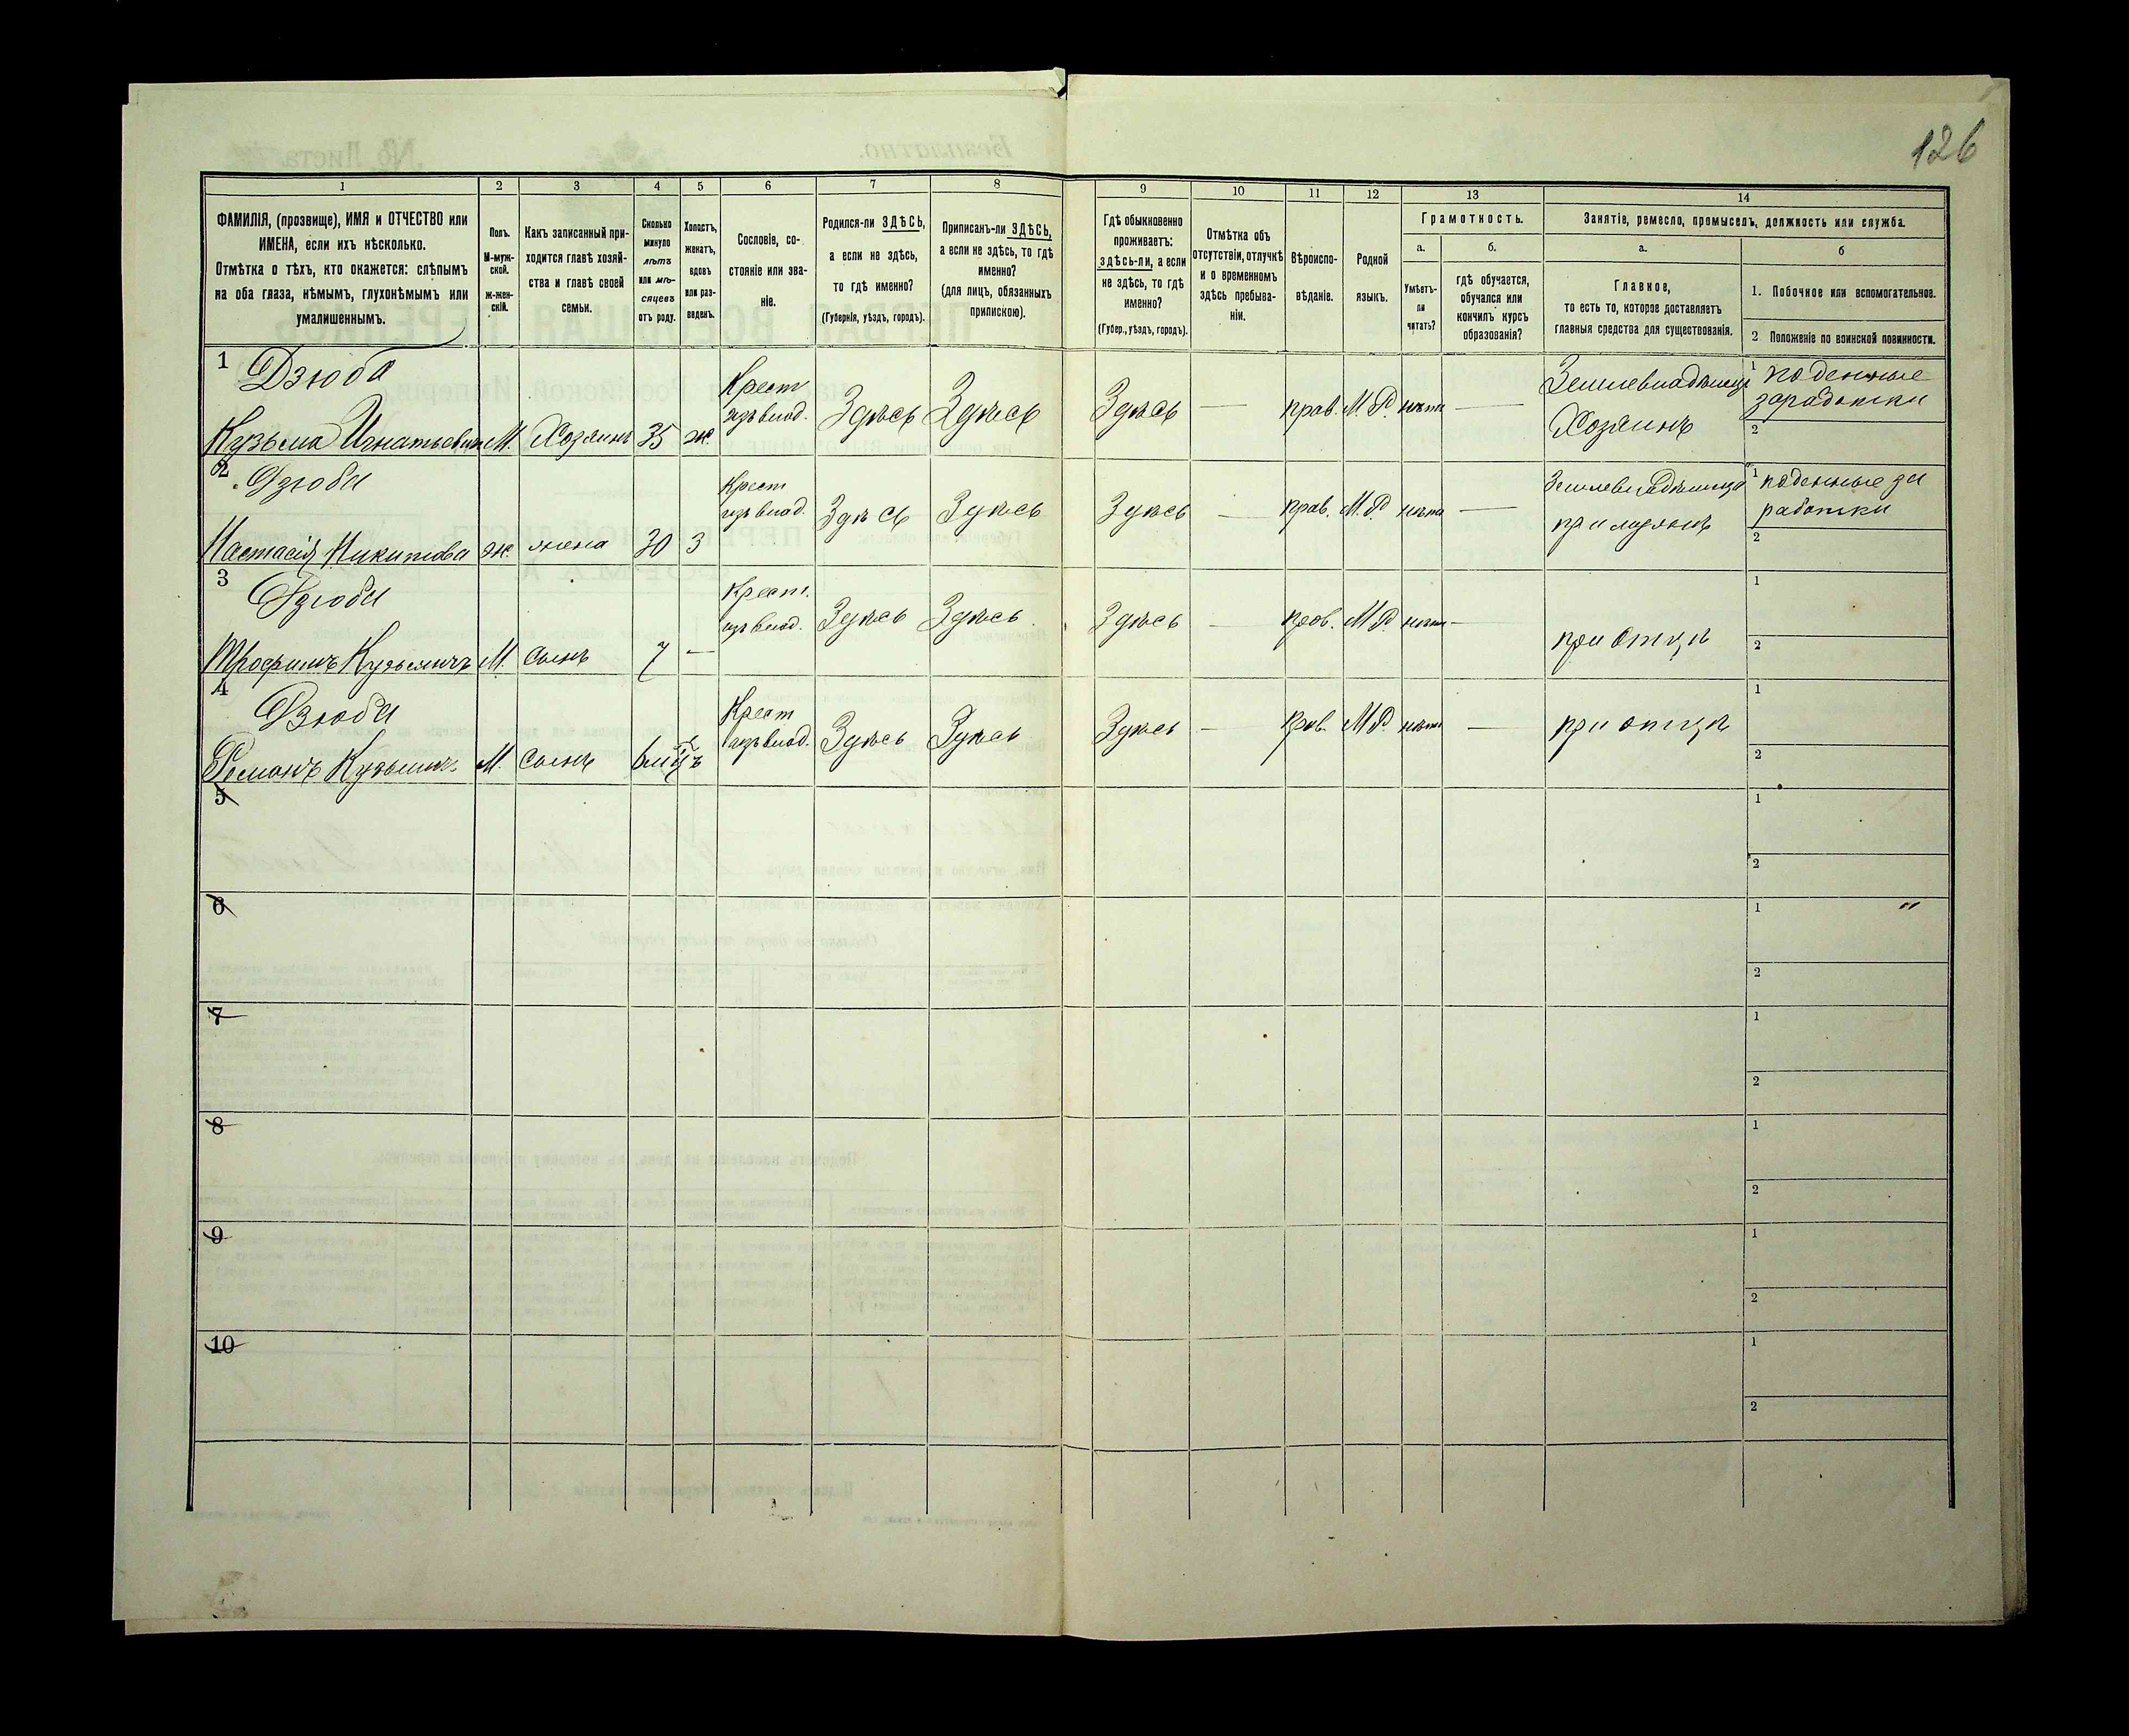 126
1
2
3
4
5
6
7
8
9
10
11
12
13
14
ФАМИЛІЯ, (прозвище), ИМЯ и ОТЧЕСТВО или
ИМЕНА, если ихъ нѣсколько.
Отмѣтка о тѣхъ, кто окажется: слѣпымъ
на оба глаза, нѣмымъ, глухонѣмымъ или
умалишеннымъ.
Полъ.
М-муж-
ской.
ж-жен-
скій.
Какъ записанный при-
ходится главѣ хозяй-
ства и главѣ своей
семьи.
Сколько
минуло
лѣтъ
или мѣ-
сяцевъ
отъ роду.
Холостъ,
женатъ,
вдовъ
или раз-
веденъ.
Сословіе, со-
стояніе или зва-
ніе.
Родился-ли ЗДѢСЬ,
а если не здѣсь,
то гдѣ именно?
(Губернія, уѣздъ, городъ).
Приписанъ-ли ЗДѢСЬ,
а если не здѣсь, то гдѣ
именно?
(для лицъ, обязанныхъ
припискою).
Гдѣ обыкновенно
проживаетъ:
здѣсь-ли, а если
не здѣсь, то гдѣ
именно?
(Губер., уѣздъ, городъ).
Отмѣтка объ
отсутствіи, отлучкѣ
и о временномъ
здѣсь пребыва-
ніи.
Вѣроиспо-
вѣданіе.
Родной
языкъ.
Грамотность.
а.
Умѣетъ-
ли
читать?
б.
гдѣ обучается,
обучался или
кончилъ курсъ
образованія?
Занятіе, ремесло, промыселъ, должность или служба.
а.
Главное,
то есть то, которое доставляетъ
главныя средства для существованія.
б
1. Побочное или вспомогательное.
2 Положеніе по воинской повинности.
1 Дзюба
Кузьма Игнатьевич М. Хозяинъ 35 ж. Крест
изъ влад. Здѣсь Здѣсь Здѣсь — прав. М.Р. нѣтъ — Землевладѣлецъ
Хозяинъ
1 поденные
заработки
2
2 Дзюба
Настасія Никитова ж. жена 30 З Крест
изъ влад. Здѣсь Здѣсь Здѣсь — прав. М.Р. нѣтъ —
1 поденные за
работки
2
3 Дзюба
Трофимъ Кузьмичъ М. сынъ 7 — Крест.
изъ влад. Здѣсь Здѣсь Здѣсь — прав. М.Р. нѣтъ — при отцѣ
1
2
4 Дзюба
Романъ Кузьмичъ М. сынъ Крест
изъ влад. Здѣсь Здѣсь Здѣсь — прав. М.Р. нѣтъ — при отцѣ
1
2
5
1
2
6
1
2
7
1
2
8
1
2
9
1
2
10
1
2